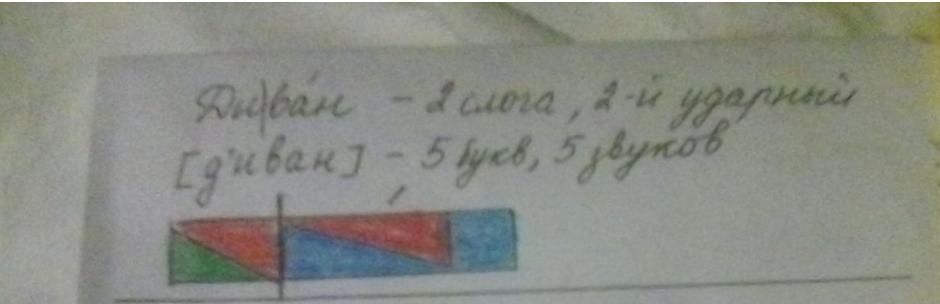 Ди|ва́н - 2 слога, 2-й ударный
[д'иван] - 5 букв, 5 звуков